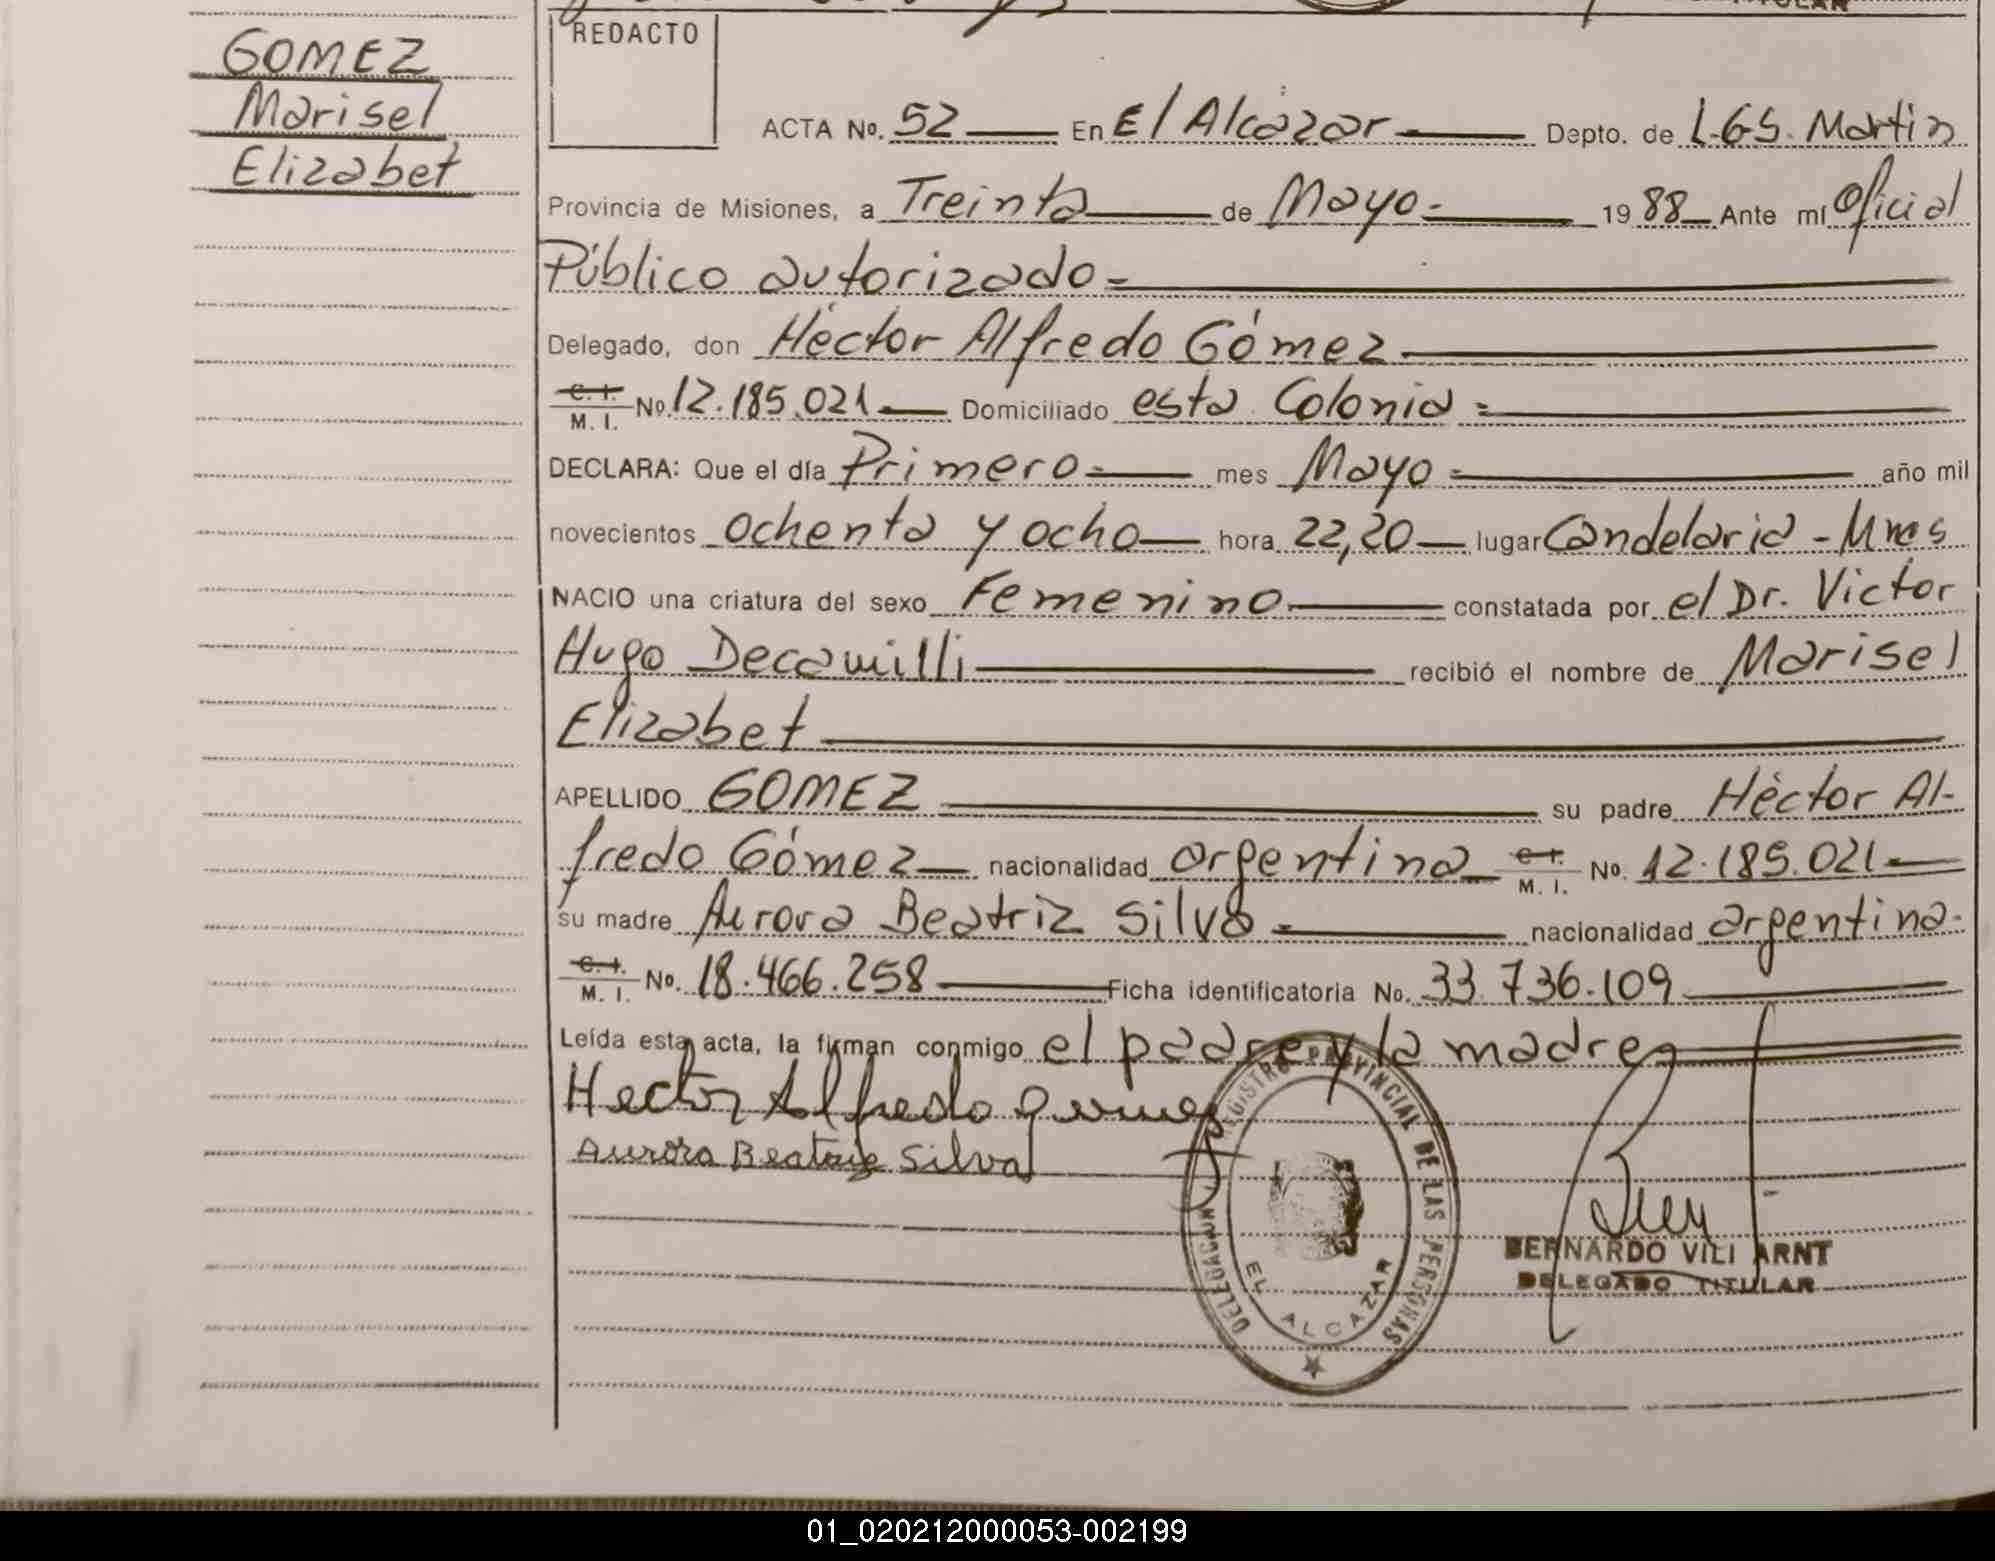 TITULAR
GOMEZ
Marisel
Elizabet
REDACTO
ACTA No. 52 En El Alcazar Depto. de L.G.S. Martin
Provincia de Misiones, a Treinta de Mayo- 1988 Ante mí Oficial
Público autorizado=
Delegado, don Héctor Alfredo Gómez
C. I. M. I. No. 12.185.021 Domiciliado esta Colonia =
DECLARA: Que el día Primero= mes Mayo = año mil
novecientos ochenta y ocho hora 22,20 lugar Candelaria - Mnes
NACIO una criatura del sexo Femenino constatada por el Dr. Victor
Hugo Decamilli recibió el nombre de Marisel
Elizabet
APELLIDO GOMEZ su padre Héctor Al-
fredo Gómez nacionalidad argentina C. I. M. I. No. 12.185.021
su madre Aurora Beatriz Silva = nacionalidad argentina-
C. I. M. I. No. 18.466.258 Ficha identificatoria No. 33.736.109
Leída esta acta, la firman conmigo el padre y la madre
Hector Alfredo gomez
Aurora Beatriz Silva
DELEGACION REGISTRO PROVINCIAL DE LAS PERSONAS
EL ALCAZAR
BERNARDO VILI ARNT
DELEGADO TITULAR
01_020212000053-002199